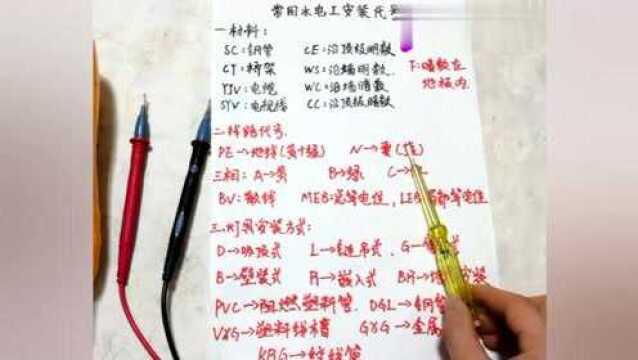 常用水电工安装代号
一材料:
SC:钢管 CE:沿顶板明敷
CT:桥架 WS:沿墙明敷. F:暗敷在
YJV:电缆 WC:沿墙暗敷 地板内.
SYV:电视线 CC:沿顶板暗敷
二线路代号.
PE→地线(黄十绿) N→零(
三相:A→黄 B→绿 C→
BV:散线 MEB:总等电位, LEB 部等电位
三.灯具安装方式:
D→吸顶式 L→链吊式. G→ 式
B→壁装式 R→嵌入式 BR→ 安装
PVC→阻燃塑料管. DGL→钢管
VXG→塑料线槽 GXG→金属
KBG→